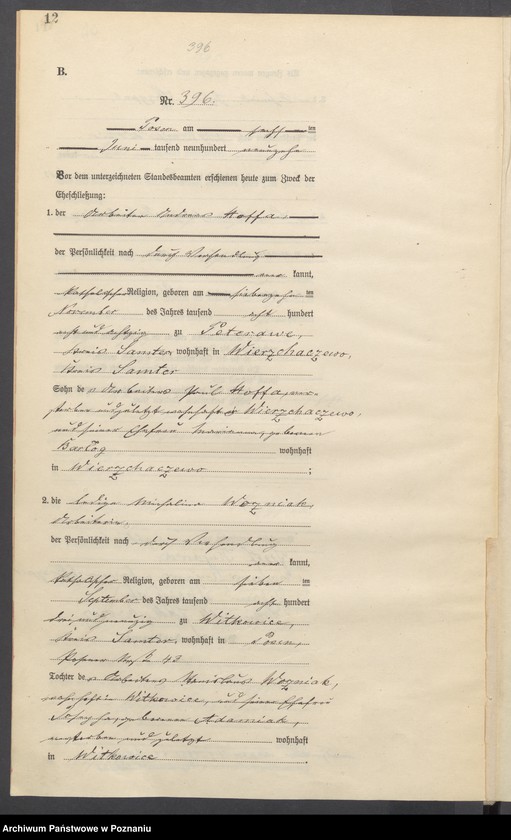 12
396
B.
Nr. 396.
Posen am sechsten
Juni tausend neunhundert neunzehn
Vor dem unterzeichneten Standesbeamten erschienen heute zum Zweck der
Eheschließung:
1. der Arbeiter Andreas Hoffa,
der Persönlichkeit nach durch Verhandlung
kannt,
katholischer Religion, geboren am siebzehnten
November des Jahres tausend acht hundert
acht und achtzig zu Peterawe,
Kreis Samter wohnhaft in Wierzchaczewo,
Kreis Samter
Sohn des Arbeiters Paul Hoffa, ver-
storben und zuletzt wohnhaft in Wierzchaczewo,
und seiner Ehefrau Marianna, geborenen
Bartog wohnhaft
in Wierzchaczewo ;
2. die ledige Michalina Wozniak,
Arbeiterin.
der Persönlichkeit nach durch Verhandlung
kannt,
katholischer Religion, geboren am sieben ten
September des Jahres tausend acht hundert
drei und neunzig zu Witkowice,
Kreis Samter, wohnhaft in Posen,
43
Tochter des Arbeiters Stanislaus Wozniak,
wohnhaft in Witkowice, und seiner Ehefrau
Josepha, geborenen Adamiak,
verstorben und zuletzt wohnhaft
in Witkowice .
Archiwum Państwowe w Poznaniu